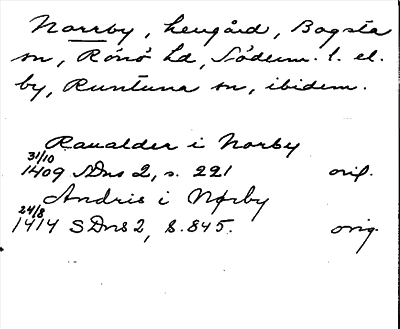 Norrby, hemgård, Bogsta
sn, Rönö hd, Söderm. l. el.
by, Runtuna sn, ibidem.
Raualder i Norby
31/10
1409 SDns 2, s. 221 orig.
Andris i Norby
24/8
1414 SDns 2, s. 845. orig.